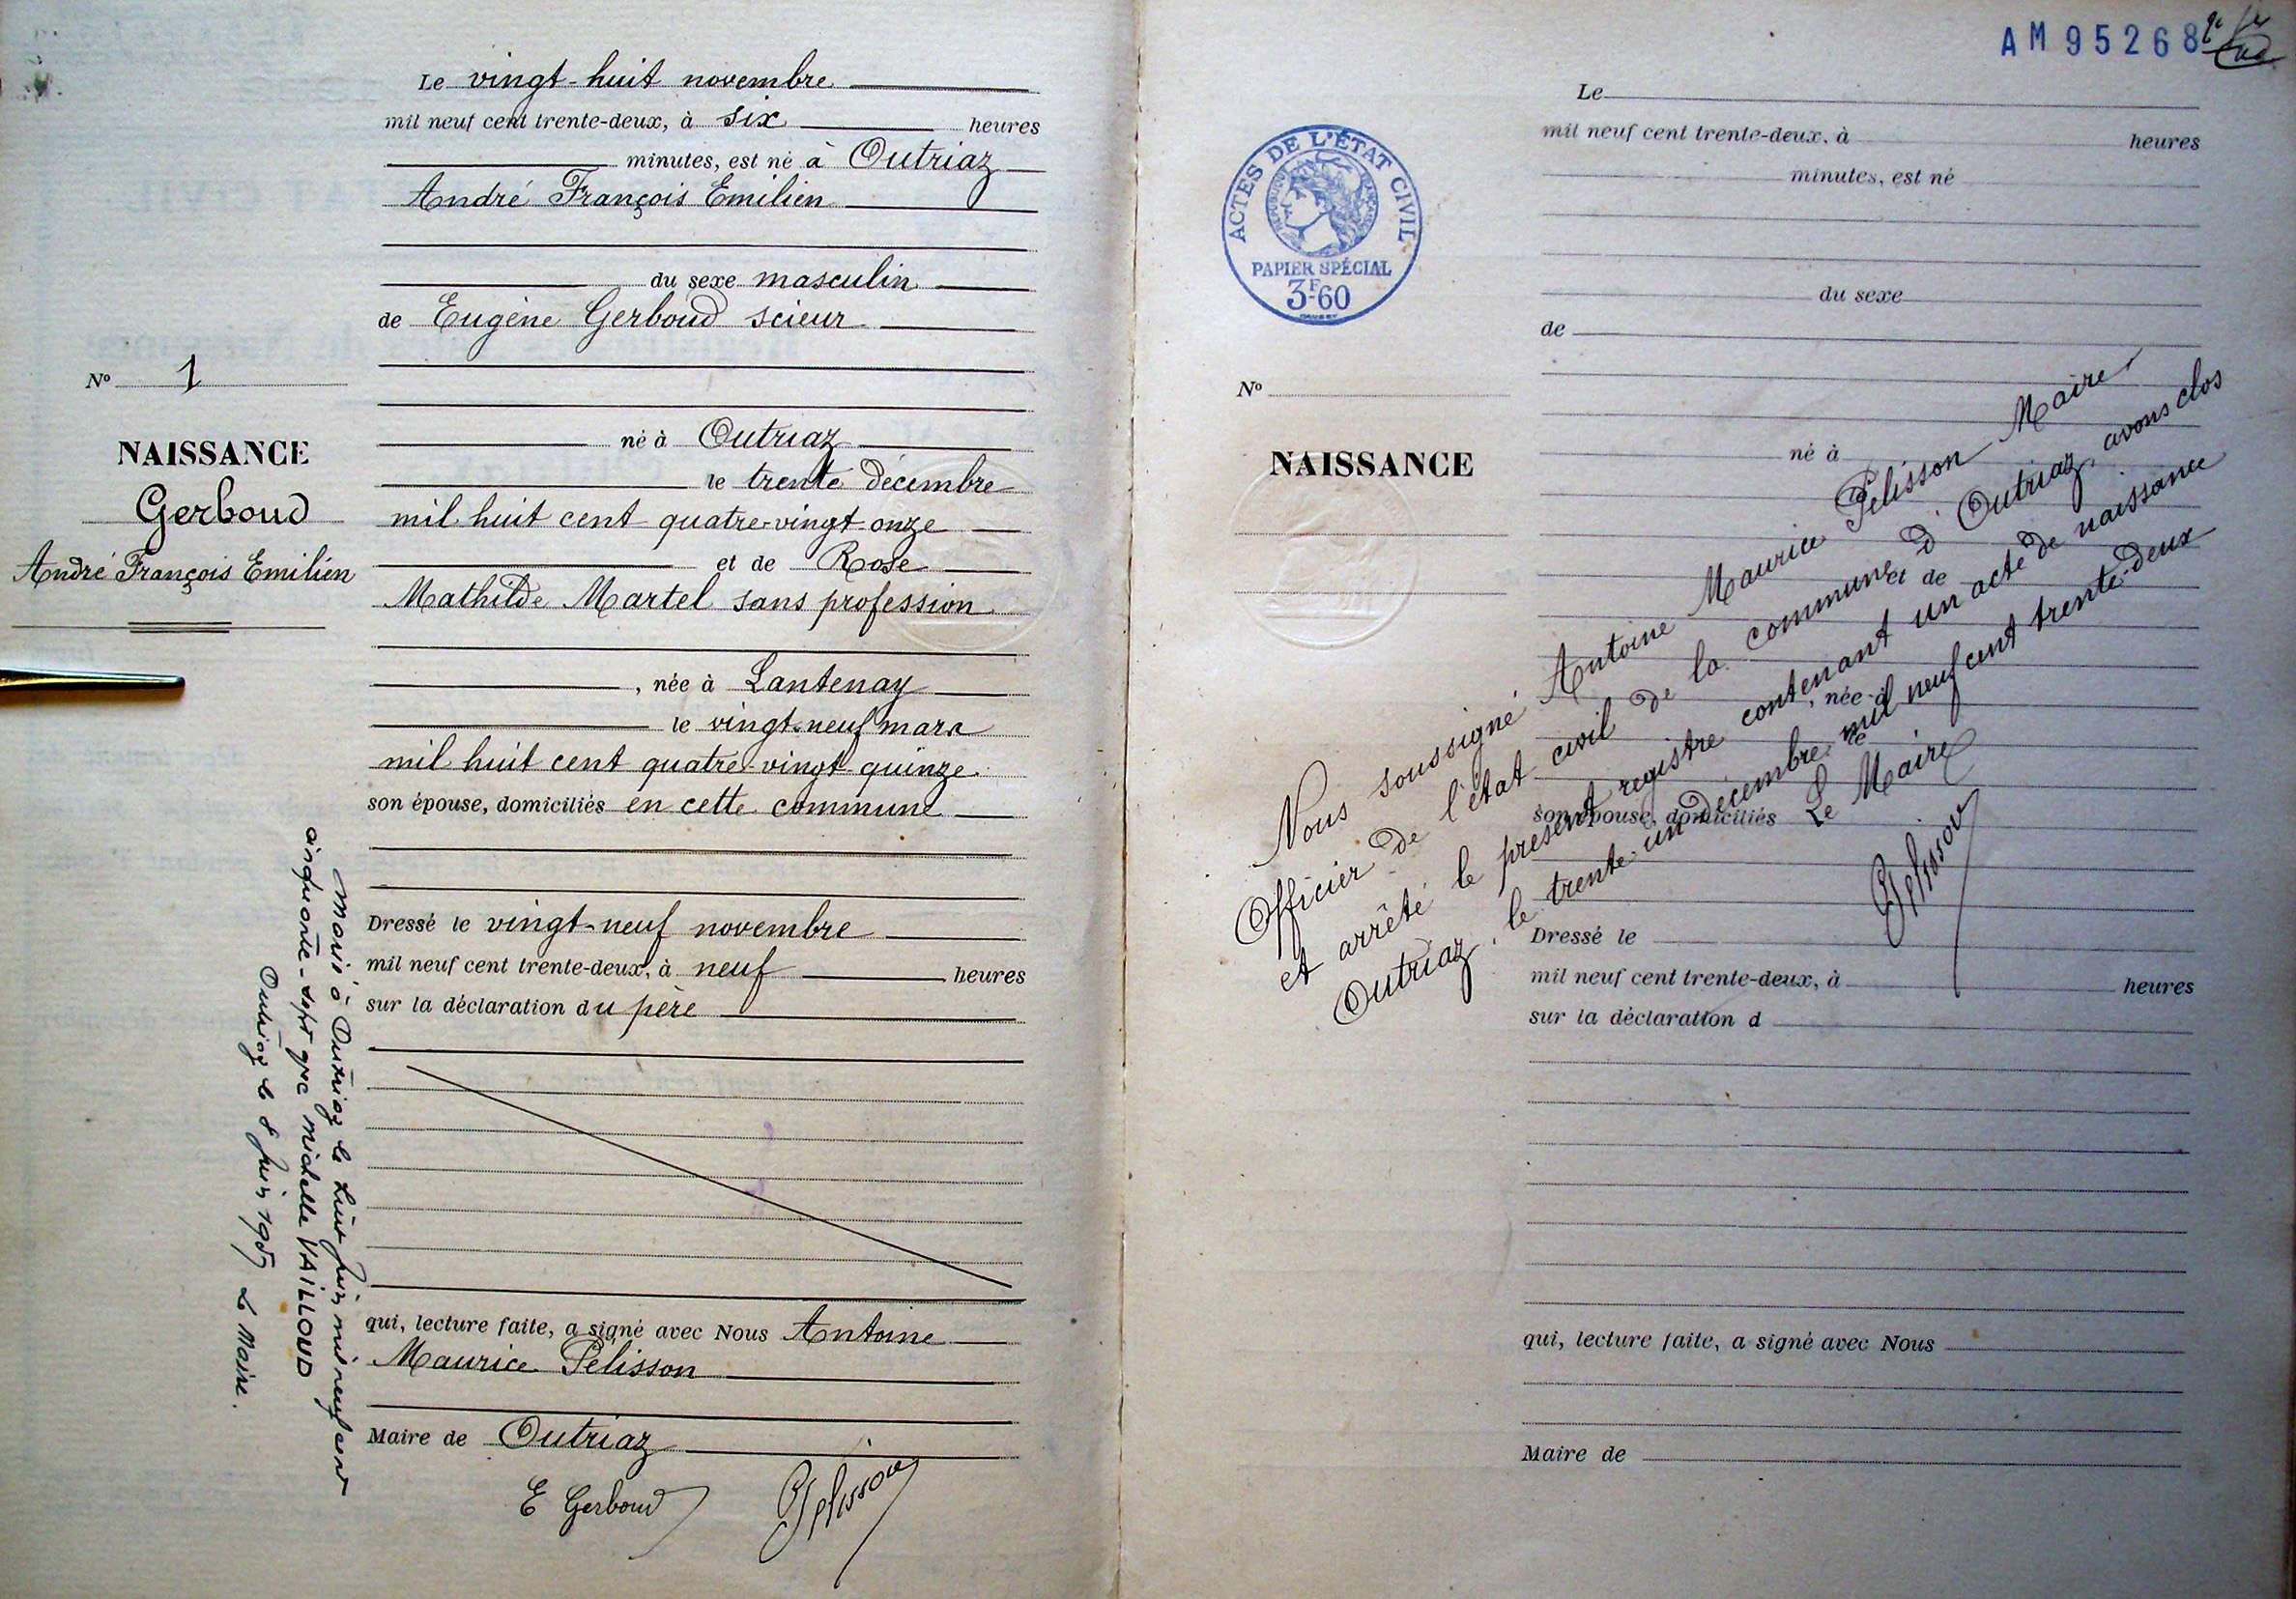 Le vingt-huit novembre
mil neuf cent trente-deux, à six heures
minutes, est né à Outriaz
André François Emilien
du sexe masculin
de Eugène Gerboud scieur
né à Outriaz
le trente décembre
mil huit cent quatre-vingt-onze
et de Rose
Mathilde Martel sans profession
, née à Lantenay
le vingt-neuf mars
mil huit cent quatre-vingt-quinze
son épouse, domiciliés en cette commune
Dressé le vingt-neuf novembre
mil neuf cent trente-deux, à neuf heures
sur la déclaration du père
qui, lecture faite, a signé avec Nous Antoine
Maurice Pélisson
Maire de Outriaz
E Gerboud Pelisson
No 1
NAISSANCE
Gerboud
André François Emilien
Marié à Outriaz le huit juin mil neuf cent
cinquante-sept avec Michelle VAILLOUD
Outriaz le 8 juin 1957 Le Maire.
AM 95268
ACTES DE L'ÉTAT CIVIL
RÉPUBLIQUE FRANÇAISE
PAPIER SPÉCIAL
3F60
No
NAISSANCE
Le
mil neuf cent trente-deux, à heures
minutes, est né
du sexe
de
né à
et de
, née à
le
son épouse, domiciliés
Dressé le
mil neuf cent trente-deux, à heures
sur la déclaration d
qui, lecture faite, a signé avec Nous
Maire de
Nous soussigné Antoine Maurice Pélisson Maire
Officier de l'état civil de la commune d'Outriaz, avons clos
et arrêté le présent registre contenant un acte de naissance
Outriaz, le trente-un décembre mil neuf cent trente-deux
Le Maire
Pelisson